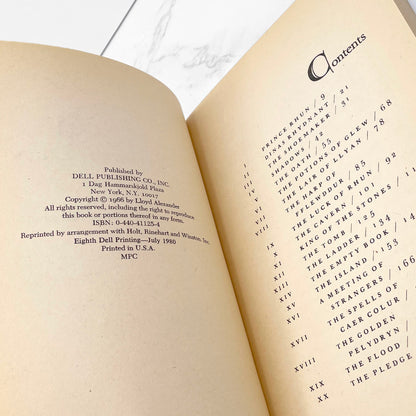 Published by
DELL PUBLISHING CO., INC.
1 Dag Hammarskjold Plaza
New York, N.Y. 10017
Copyright © 1966 by Lloyd Alexander
All rights reserved, including the right to reproduce
this book or portions thereof in any form.
ISBN: 0-440-41125-4
Reprinted by arrangement with Holt, Rinehart and Winston, Inc.
Eighth Dell Printing—July 1980
Printed in U.S.A.
MPC
Contents
I PRINCE RHUN / 9
II DINAS RHYDNANT / 21
III THE SHOEMAKER / 31
IV SHADOWS /
V THE OATH / 55
VI THE POTIONS OF GLEW / 68
VII THE LAIR OF LLYAN / 78
VIII THE HARP OF
FFLEWDDUR / 85
IX THE LUCK OF RHUN / 92
X THE CAVERN / 101
XI KING OF THE STONES /
XII THE TOMB / 125
XIII THE LADDER / 134
XIV THE EMPTY BOOK /
XV THE ISLAND / 153
XVI A MEETING OF
STRANGERS /
XVII THE SPELLS OF
CAER COLUR /
XVIII THE GOLDEN
PELYDRYN /
XIX THE FLOOD /
XX THE PLEDGE /